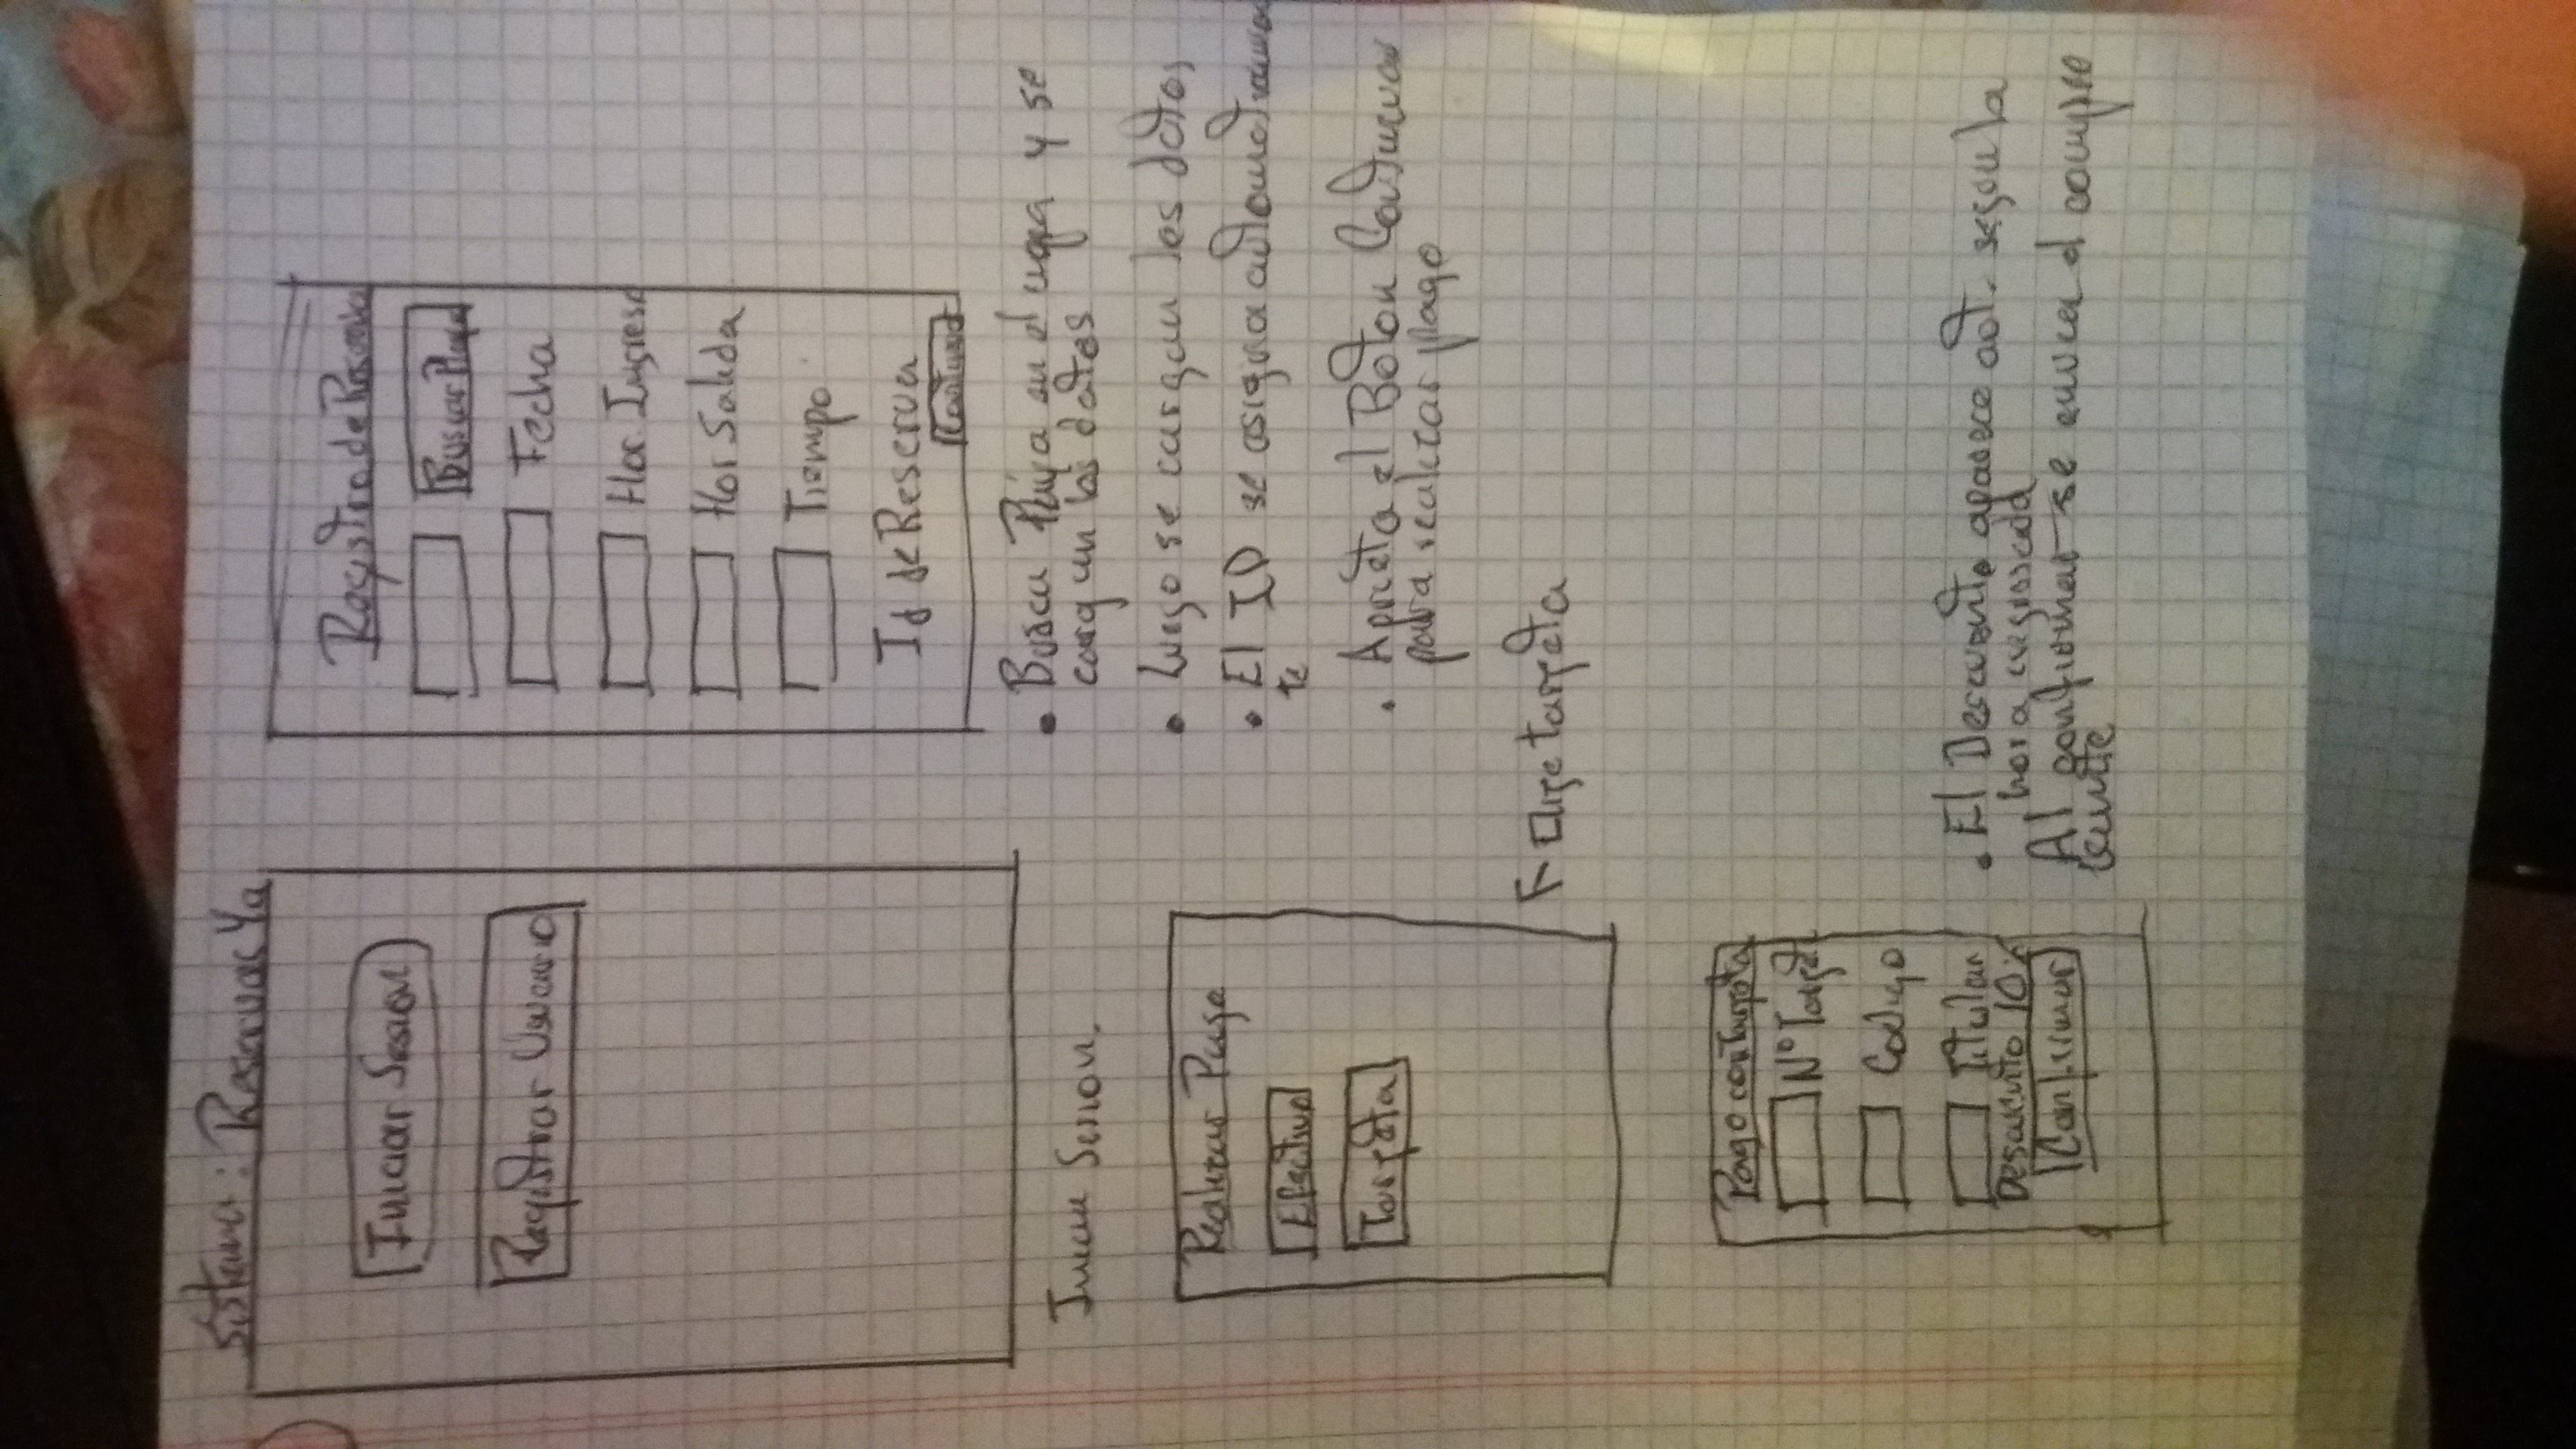 Sistema: Reservas Ya
Iniciar Sesion
Registrar Usuario
Iniciar Sesion.
Registro de Reserva
Buscar Playa
Fecha
Hor Ingreso
Hor Salida
Tiempo
Id de Reserva
Continuar
• Busca Playa en el mapa y se
cargan los datos
• Luego se cargan los datos
• El ID se asigna automaticamen
te
• Aprieta el Boton Continuar
para realizar pago
Realizar Pago
Efectivo
Targeta
Elige targeta
Pago con Targeta
N° Targeta
Codigo
Titular
Descuento 10%
Confirmar
• El Descuento aparece aut. segun la
hora ingresada
Al confirmar se envia el compro
bante